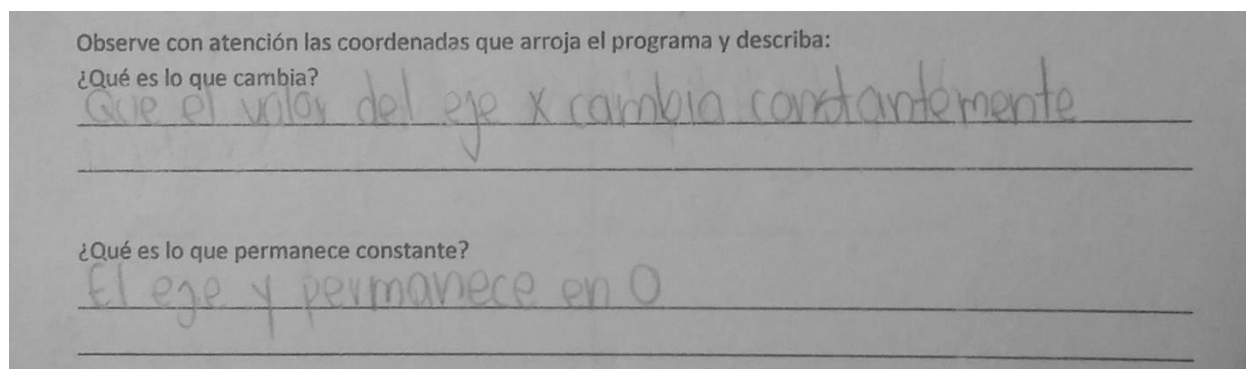 Observe con atención las coordenadas que arroja el programa y describa:
¿Qué es lo que cambia?
Que el valor del eje x cambia constantemente
¿Qué es lo que permanece constante?
El eje y permanece en 0